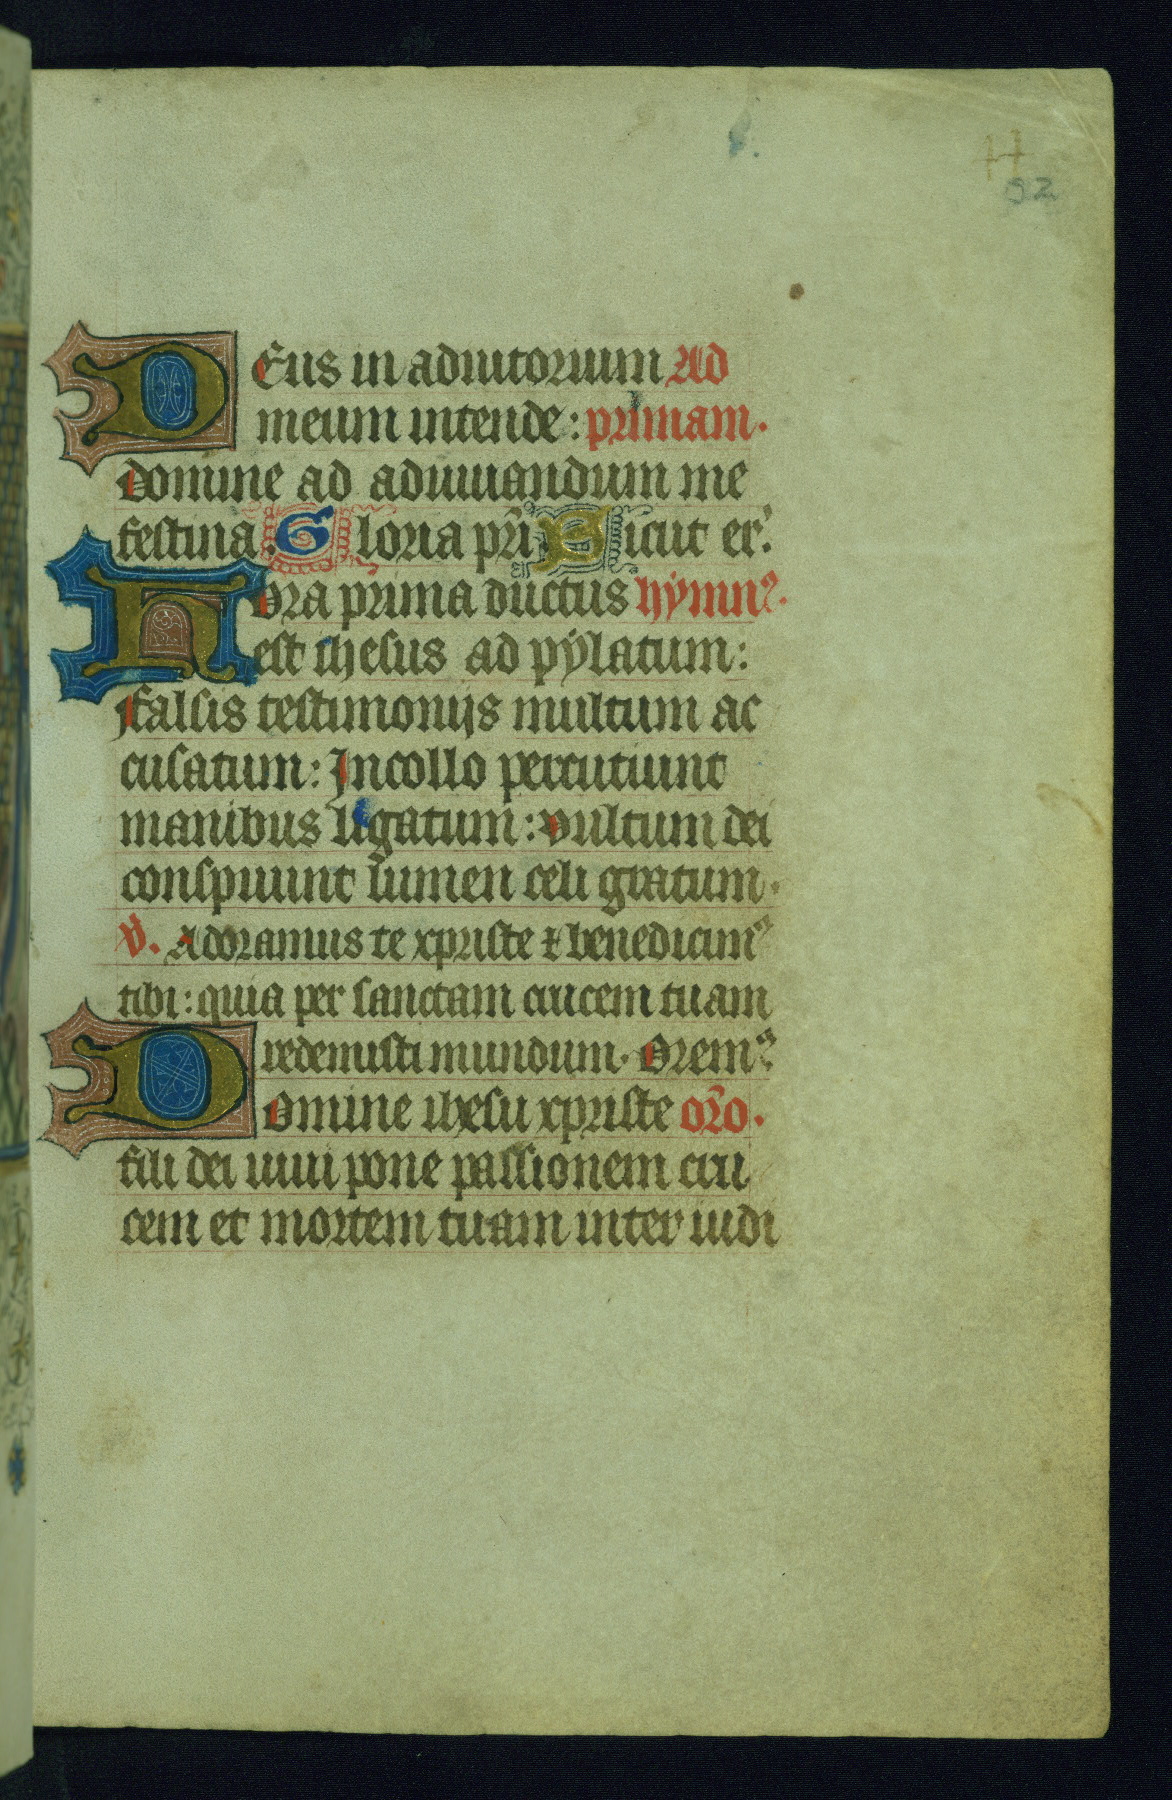 H
92
DEus in adiutorium Ad
meum intende: primam.
domine ad adiuuandum me
festina. Gloria pr̃i Sicut er̉.
Hora prima ductus hymnꝰ.
est ihesus ad pylatum:
ffalsis testimonijs multum ac
cusatum: Incollo percutiunt
manibus ligatum: vultum dei
conspuunt lumen celi gratum.
V. Adoramus te xpriste ⁊ benedicimꝰ
tibi: quia per sanctam crucem tuam
redemisti mundum. Oremꝰ
Domine ihesu xpriste or̃o.
fili dei uiui pone passionem cru
cem et mortem tuam inter iudi